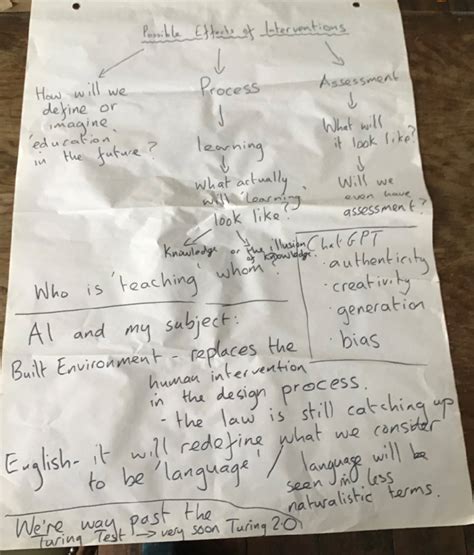 Possible Effects of Interventions
How will we
define or
imagine
'education'
in the future?
Process
learning
what actually
will 'learning'
look like?
Knowledge or the illusion
of knowledge.
Assessment
What will
it look like?
Will we
even have
assessment?
Who is 'teaching' whom?
Chat GPT
· authenticity
· creativity
· generation
· bias
AI and my subject:
Built Environment - replaces the
human intervention
in the design process.
- the law is still catching up
English - it will redefine what we consider
to be 'language' /
language will be
seen in less
naturalistic terms.
We're way past the
Turing Test → very soon Turing 2.0